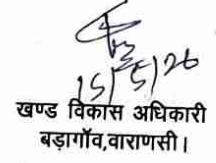 15/5/26
खण्ड विकास अधिकारी
बड़ागॉव,वाराणसी।